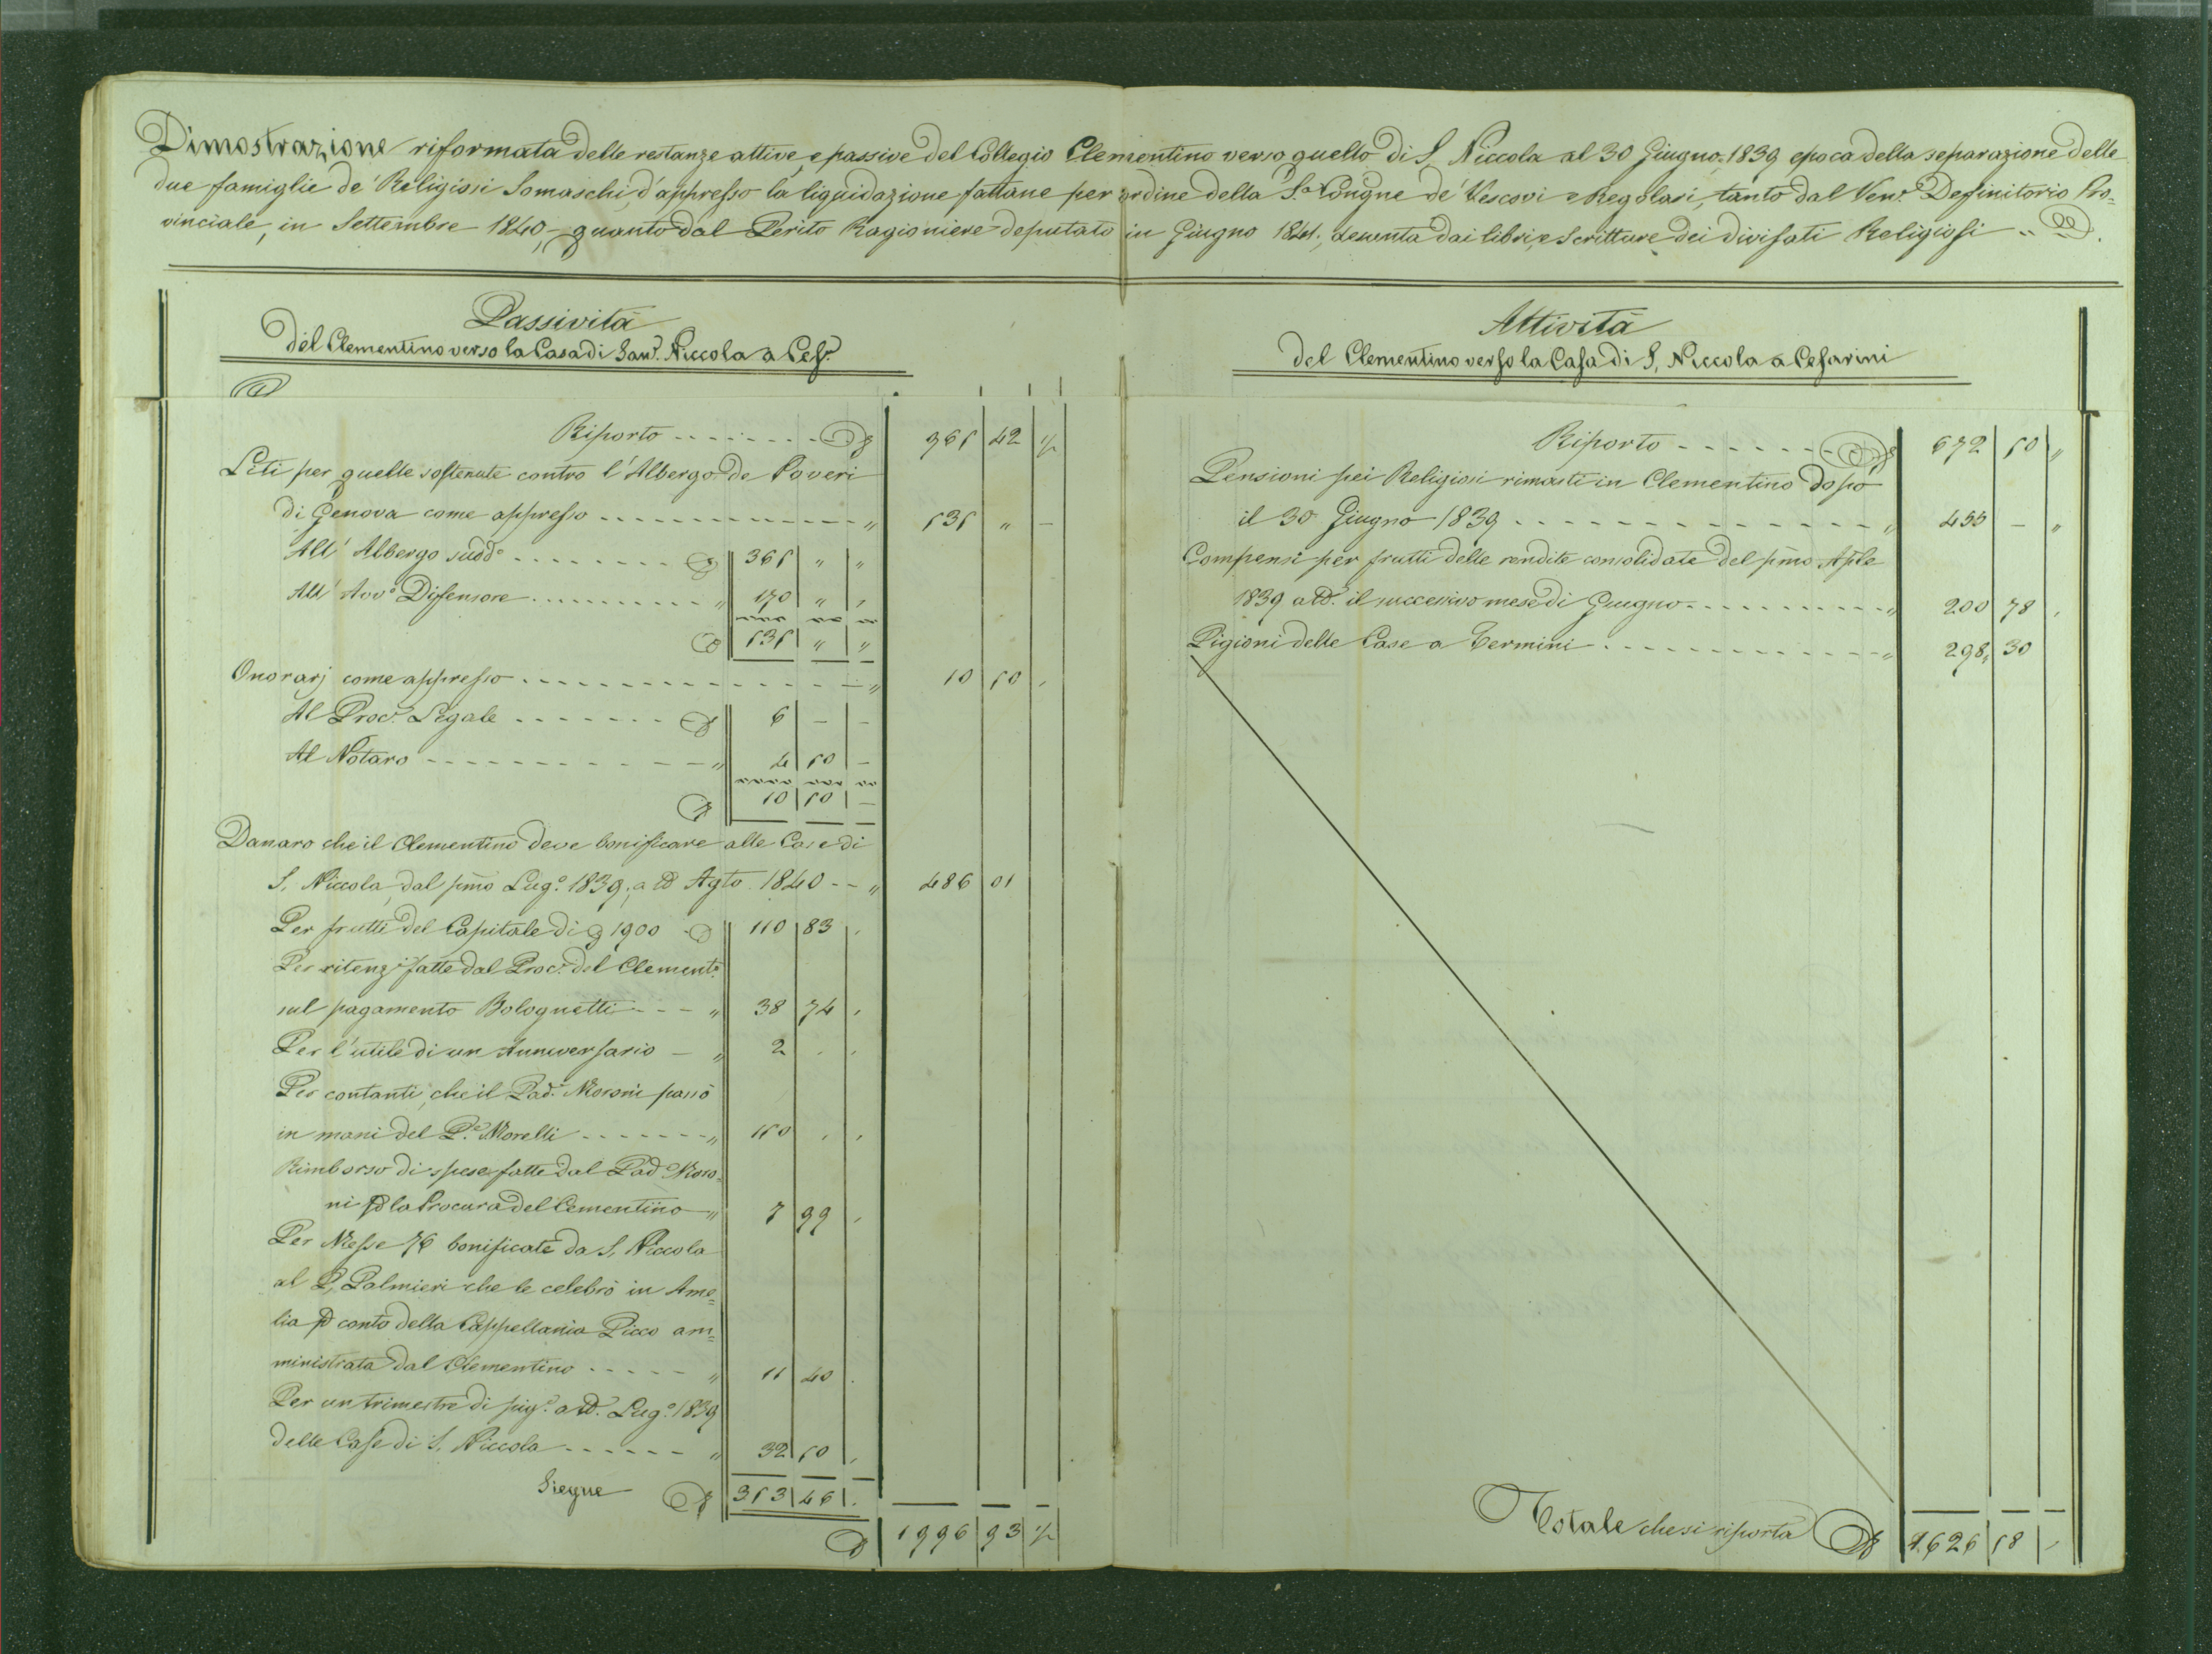 Dimostrazione riformata delle restanze attive, e passive del Collegio Clementino verso quello di S. Niccola al 30 Giugno 1839 epoca della separazione delle
due famiglie de' Religiosi Somaschi, d'appresso la liquidazione fattane per ordine della S.a Congne de' Vescovi e Regolari, tanto dal Ven.e Definitorio Pro=
vinciale, in Settembre 1840, quanto dal Perito Ragioniere deputato in Giugno 1841, desunta dai libri, e Scritture dei divisati Religiosi
Passività
del Clementino verso la Casa di San. Niccola a Ces.i
Riporto 965 42 ½
Liti per quelle sostenute contro l'Albergo de Poveri
di Genova come appresso 535 " -
All' Albergo sudd.o 365 " "
All' Avv.o Difensore 170 " "
535 " "
Onorarj come appresso 10 50
Al Proc.e Legale 6 - -
Al Notaro 4 50 -
10 50 -
Danaro che il Clementino deve bonificare alle Case di
S. Niccola, dal pmo Lug.o 1839, a tt° Agto. 1840 486 01
Per frutti del Capitale di 1900 110 83
Per ritenz.i fatte dal Proc.e del Clement.o
sul pagamento Bolognetti 38 74
Per l'utile di un Anniversario 2
Per contanti, che il Pad.e Moroni passò
in mani del P.e Morelli 150
Rimborso di spese fatte dal Pad.e Moro=
ni p la Procura del Clementino 7 99
Per Messe 76 bonificate da S. Niccola
al P. Palmieri che le celebrò in Ame=
lia p conto della Cappellania Picco am=
ministrata dal Clementino 11 40
Per un trimestre di pig.e a tt° Lug.o 1839
delle Case di S. Niccola 32 50
Siegue 353 46
1996 93 ½
Attività
del Clementino verso la Casa di S. Niccola a Cesarini
Riporto 672 50 "
Pensioni pei Religiosi rimasti in Clementino dopo
il 30 Giugno 1839 455 - "
Compensi per frutti delle rendite consolidate del pmo Aple
1839 a tt° il successivo mese di Giugno 200 78
Pigioni delle Case a Termini 298 30
Totale che si riporta 1626 58